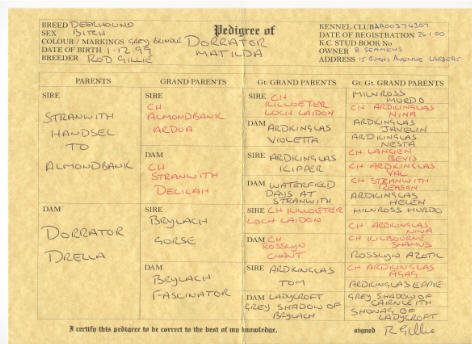 BREED DEERHOUND
SEX BITCH
COLOUR / MARKINGS GREY BRINDLE
DATE OF BIRTH 1-12-99
BREEDER ROD GILLIE
Pedigree of
DORRATOR
MATILDA
KENNEL CLUB
DATE OF REGISTRATION
K.C. STUD BOOK No
OWNER
ADDRESS
PARENTS
GRAND PARENTS
Gt. GRAND PARENTS
Gt. Gt. GRAND PARENTS
SIRE
STRANWITH
HANDSEL
TO
ALMONDBANK
DAM
DORRATOR
DRELLA
SIRE
CH
ALMONDBANK
ARDUA
DAM
CH
STRANWITH
DELILAH
SIRE
BRYLACH
GORSE
DAM
BRYLACH
FASCINATOR
SIRE CH
KILLOETER
LOCH LAIDON
DAM ARDKINGLAS
VIOLETTA
SIRE ARDKINGLAS
KIPPER
DAM WATERFIELD
DAYS AT
STRANWITH
SIRE CH KILLOETER
LOCH LAIDON
DAM CH
ROSSLYN
CHANT
SIRE ARDKINGLAS
TOM
DAM LADYCROFT
GREY SHADOW OF
BRYLACH
MILNROSS
MURDO
CH ARDKINGLAS
NINA
ARDKINGLAS
JAVELIN
ARDKINGLAS
NESTA
CH LANGIEN
BEVIS
CH ARDKINGLAS
VAL
CH STRANWITH
TREASON
ARDKINGLAS
HELEN
MILNROSS MURDO
CH ARDKINGLAS
NINA
CH KILBOURNE
SHAMUS
ROSSLYN AZETIC
CH ARDKINGLAS
AGAG
ARDKINGLAS EPPIE
GREY SHADOW OF
CARNLEITH
SHONAG OF
LADYCROFT
I certify this pedigree to be correct to the best of my knowledge.
signed R Gillie